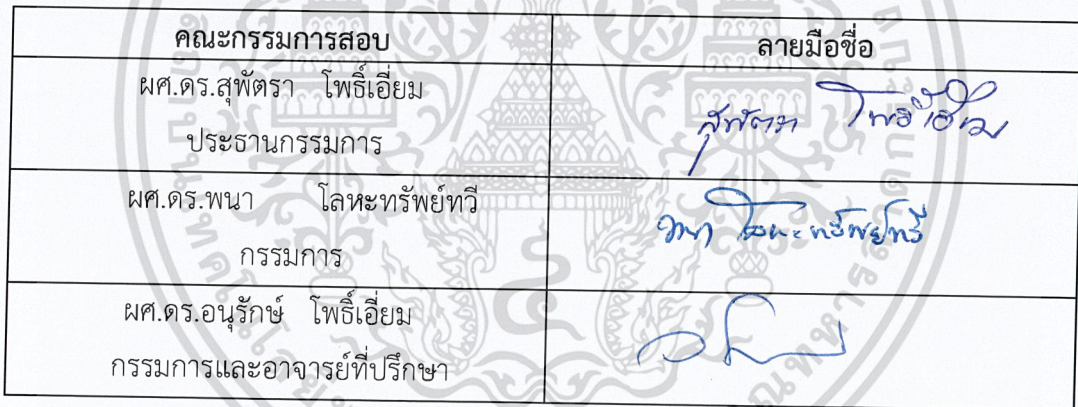 คณะกรรมการสอบ ลายมือชื่อ
ผศ.ดร.สุพัตรา โพธิ์เอี่ยม
ประธานกรรมการ
สุพัตรา โพธิ์เอี่ยม
ผศ.ดร.พนา โลหะทรัพย์ทวี
กรรมการ
พนา โลหะทรัพย์ทวี
ผศ.ดร.อนุรักษ์ โพธิ์เอี่ยม
กรรมการและอาจารย์ที่ปรึกษา